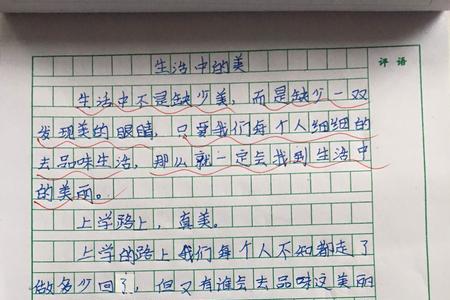 生活中的美
评语
生活中不是缺少美，而是缺少一双
发现美的眼睛，只要我们每个人细细的
去品味生活，那么就一定会找到生活中
的美丽。
上学路上，真美。
上学的路上我们每个人不知都走了
做多少回了，但又有谁会去品味这美丽